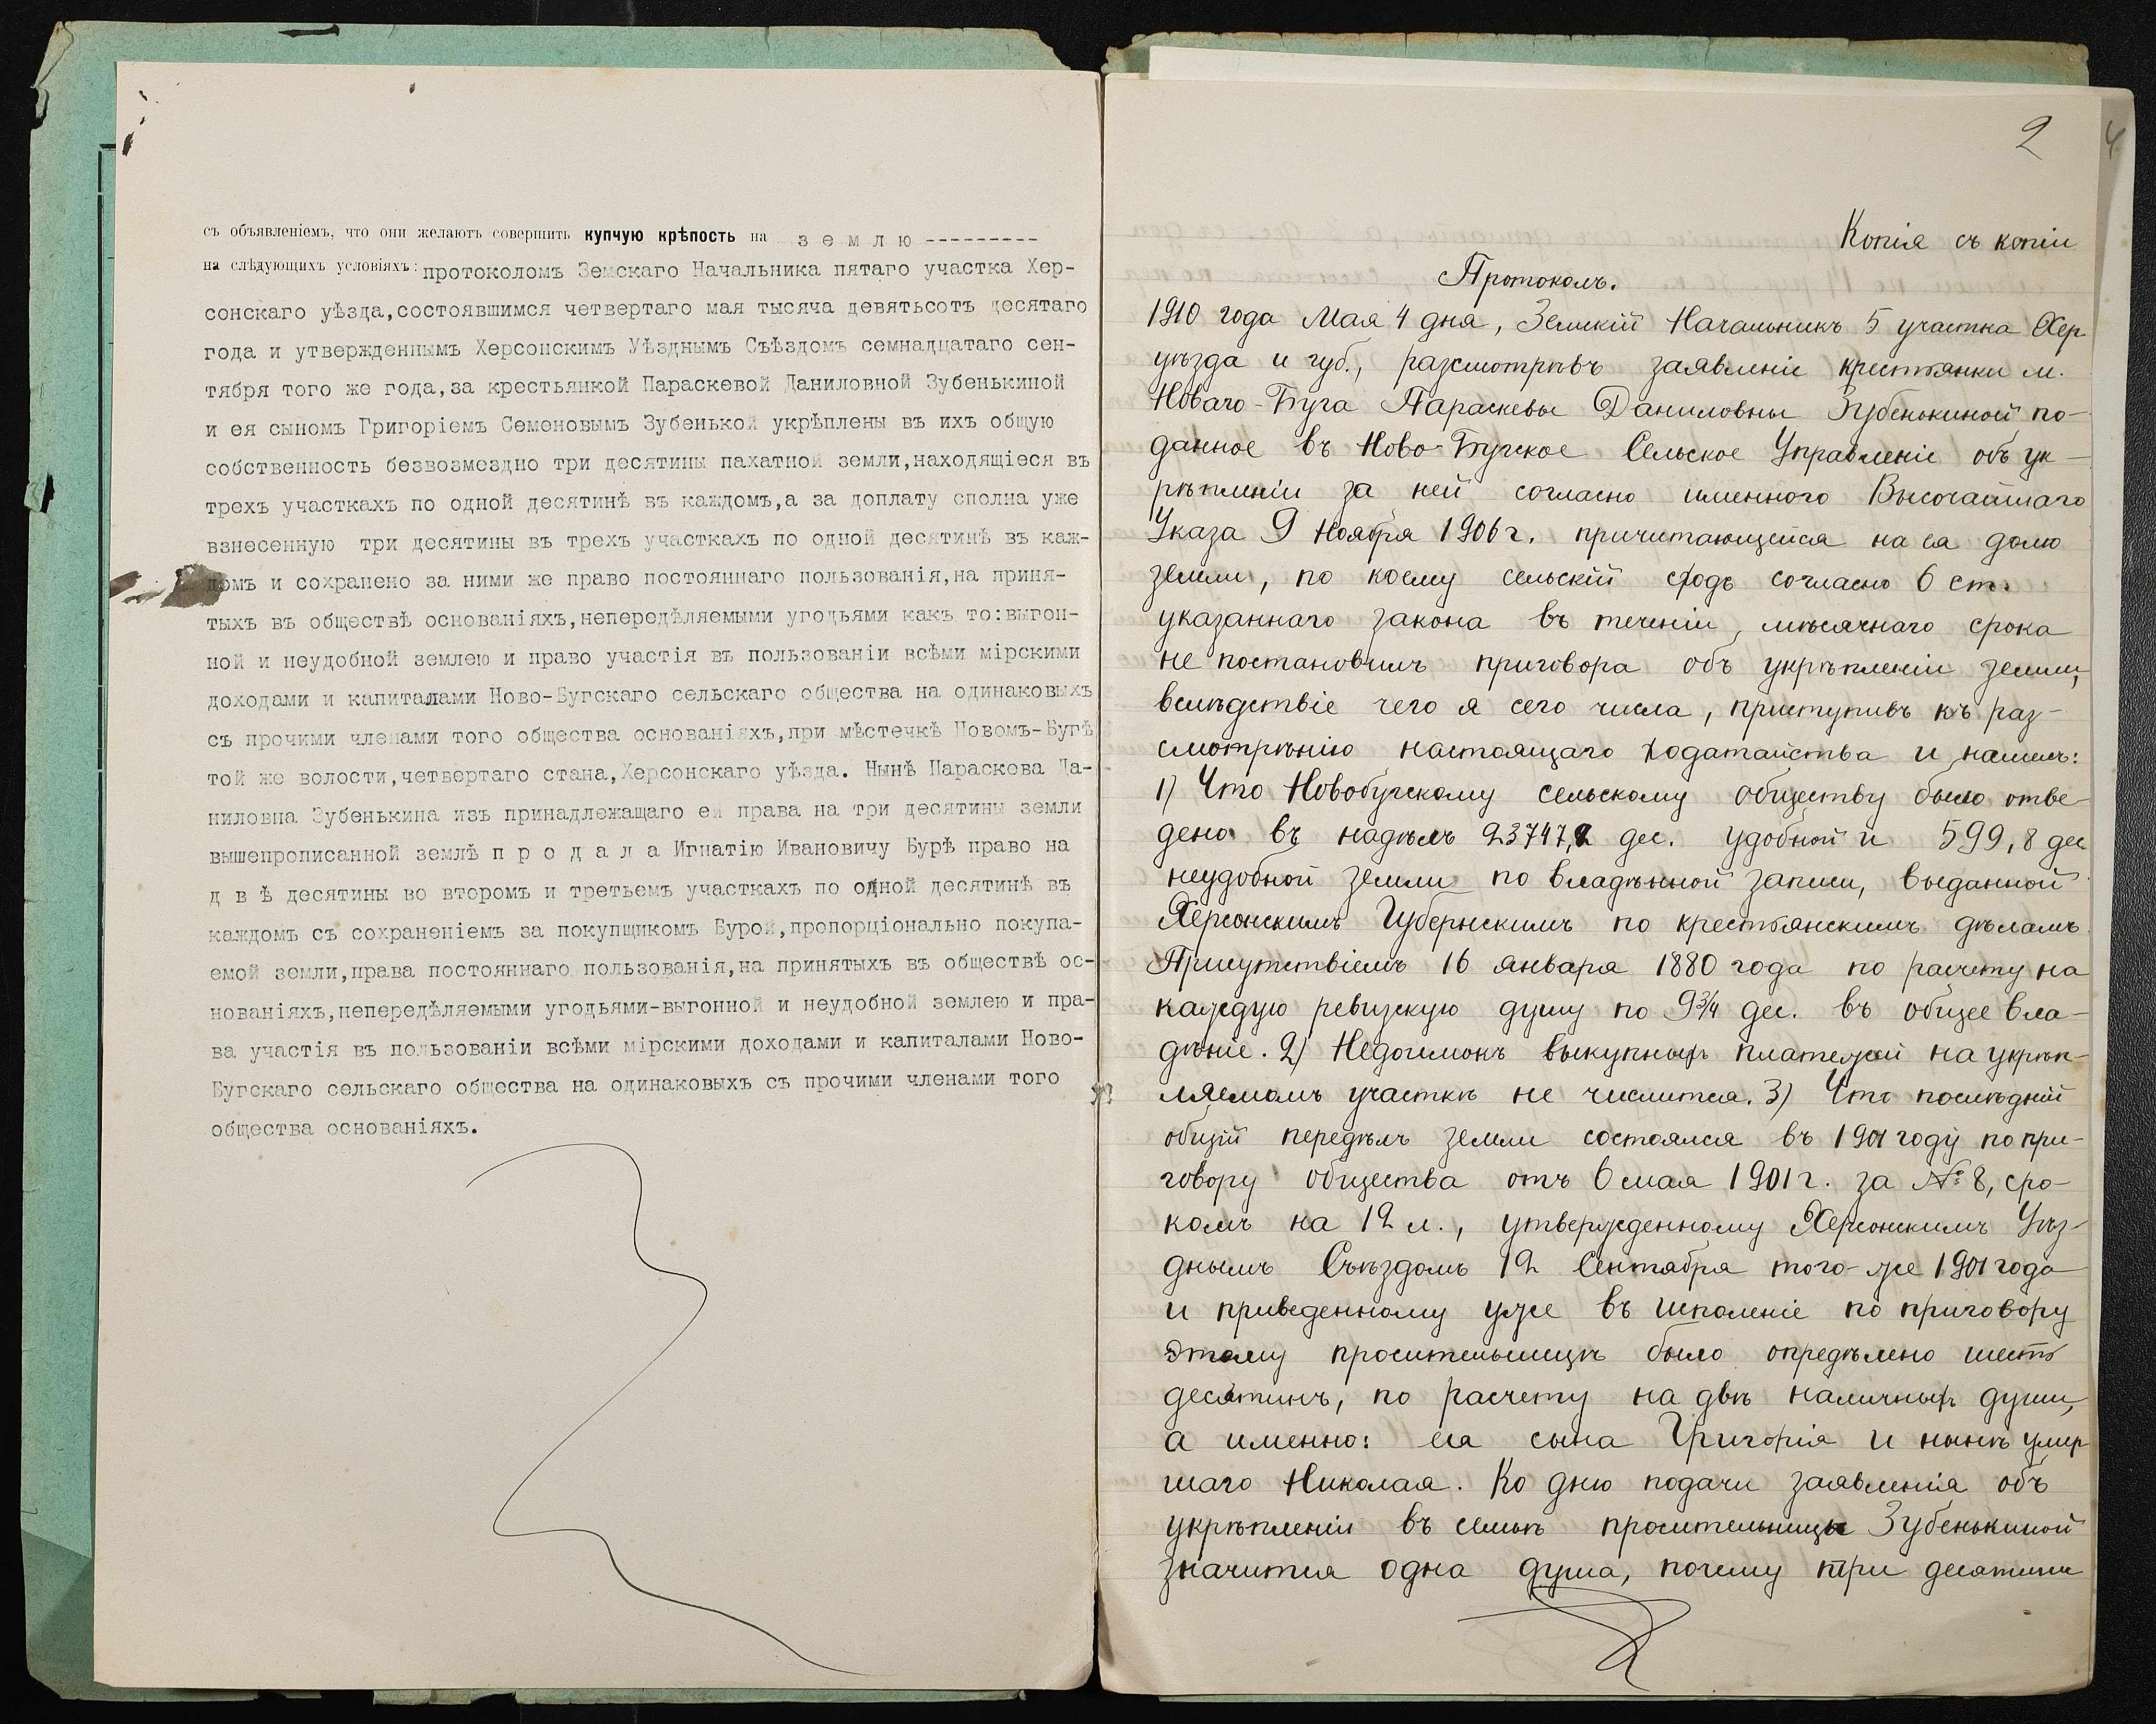 съ объявленіемъ, что они желаютъ совершить купчую крѣпость на з е м л ю ---------
на слѣдующихъ условіяхъ: протоколомъ Земскаго Начальника пятаго участка Хер-
сонскаго уѣзда,состоявшимся четвертаго мая тысяча девятьсотъ десятаго
года и утвержденнымъ Херсонскимъ Уѣзднымъ Съѣздомъ семнадцатаго сен-
тября того же года,за крестьянкой Параскевой Даниловной Зубенькиной
и ея сыномъ Григоріемъ Семеновымъ Зубенькой укрѣплены въ ихъ общую
собственность безвозмездно три десятины пахатной земли,находящіеся въ
трехъ участкахъ по одной десятинѣ въ каждомъ,а за доплату сполна уже
взнесенную три десятины въ трехъ участкахъ по одной десятинѣ въ каж-
домъ и сохранено за ними же право постояннаго пользованія,на приня-
тыхъ въ обществѣ основаніяхъ,непередѣляемыми угодьями какъ то:выгон-
ной и неудобной землею и право участія въ пользованіи всѣми мірскими
доходами и капиталами Ново-Бугскаго сельскаго общества на одинаковыхъ
съ прочими членами того общества основаніяхъ,при мѣстечкѣ Новомъ-Бугѣ
той же волости,четвертаго стана,Херсонскаго уѣзда. Нынѣ Параскева Да-
ниловна Зубенькина изъ принадлежащаго ей права на три десятины земли
вышепрописанной землѣ п р о д а л а Игнатію Ивановичу Бурѣ право на
д в ѣ десятины во второмъ и третьемъ участкахъ по одной десятинѣ въ
каждомъ съ сохраненіемъ за покупщикомъ Бурой,пропорціонально покупа-
емой земли,права постояннаго пользованія,на принятыхъ въ обществѣ ос-
нованіяхъ,непередѣляемыми угодьями-выгонной и неудобной землею и пра-
ва участія въ пользованіи всѣми мірскими доходами и капиталами Ново-
Бугскаго сельскаго общества на одинаковыхъ съ прочими членами того
общества основаніяхъ.
2
4
Копія съ копіи
Протоколъ.
1910 года Мая 4 дня, Земскій Начальникъ 5 участка Хер
уѣзда и губ., разсмотрѣвъ заявленіе крестьянки м.
Новаго-Буга Параскевы Даниловны Зубенькиной по-
данное въ Ново-Бугское Сельское Управленіе объ ук-
рѣпленіи за ней согласно именного Высочайшаго
Указа 9 Ноября 1906 г. причитающейся на ея долю
земли, по коему сельскій сходъ согласно 6 ст.
указаннаго закона въ теченіи мѣсячнаго срока
не постановилъ приговора объ укрѣпленіи земли,
вслѣдствіе чего я сего числа, приступивъ къ раз-
смотрѣнію настоящаго ходатайства и нашелъ:
1) Что Новобугскому сельскому обществу было отве-
дено въ надѣлъ 23747,2 дес. удобной и 599,8 дес
неудобной земли по владѣнной записи, выданной
Херсонскимъ Губернскимъ по крестьянскимъ дѣламъ
Присутствіемъ 16 января 1880 года по расчету на
каждую ревизскую душу по 9¾ дес. въ общее вла-
дѣніе. 2) Недоимокъ выкупныхъ платежей на укрѣп-
ляемомъ участкѣ не числится. 3) Что послѣдній
общій передѣлъ земли состоялся въ 1901 году по при-
говору общества отъ 6 мая 1901 г. за № 8, сро-
комъ на 12 л., утвержденному Херсонскимъ Уѣз-
днымъ Съѣздомъ 12 Сентября того-же 1901 года
и приведенному уже въ исполеніе по приговору
этому просительницѣ было опредѣлено шесть
десятинъ, по расчету на двѣ наличныхъ души,
а именно: ея сына Григорія и нынѣ умер
шаго Николая. Ко дню подачи заявленія объ
укрѣпленіи въ семьѣ просительницы Зубенькиной
значится одна душа, почему три десятины